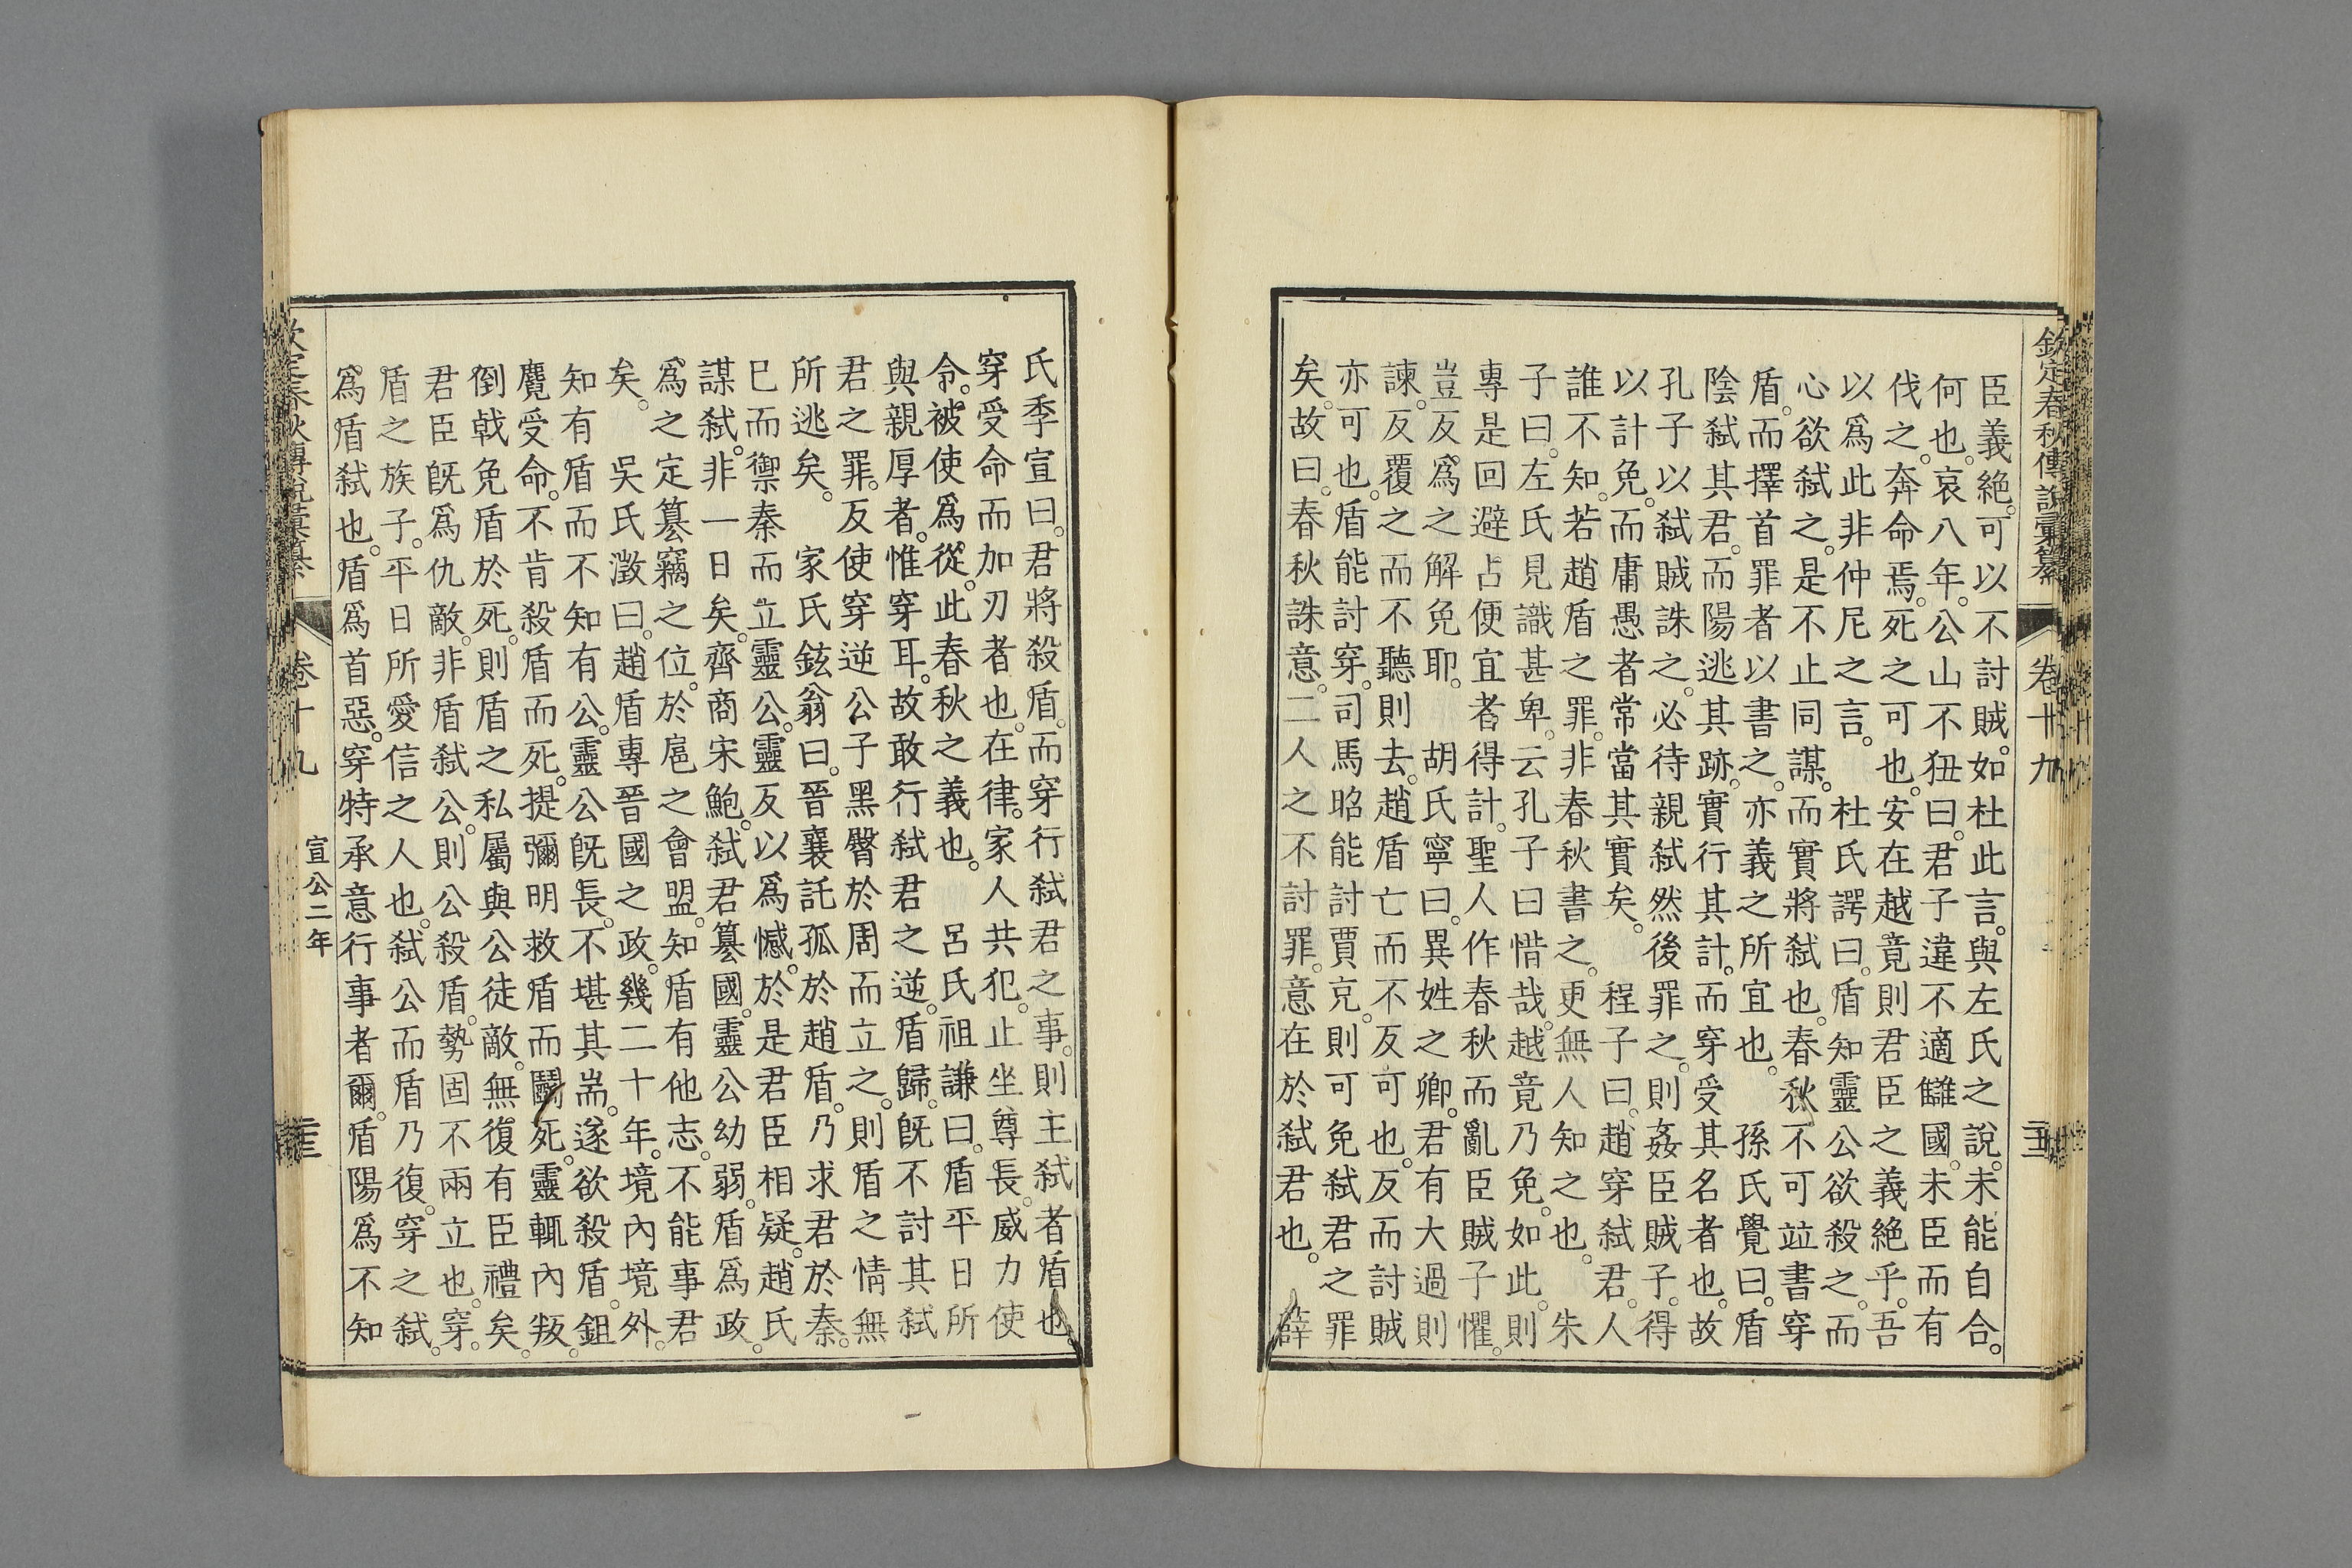 欽定春秋傳說彙纂 卷十九
臣義絕。可以不討賊。如杜此言。與左氏之說。未能自合。
何也。哀八年。公山不狃曰。君子違不適讎國。未臣而有
伐之。奔命焉。死之可也。安在越竟則君臣之義絕乎。吾
以爲此非仲尼之言。 杜氏諤曰。盾知靈公欲殺之。而
心欲弒之。是不止同謀。而實將弒也。春秋不可竝書穿
盾。而擇首罪者以書之。亦義之所宜也。 孫氏覺曰。盾
陰弒其君。而陽逃其跡。實行其計。而穿受其名者也。故
孔子以弒賊誅之。必待親弒然後罪之。則姦臣賊子。得
以計免。而庸愚者常當其實矣。 程子曰。趙穿弒君。人
誰不知。若趙盾之罪。非春秋書之。更無人知之也。 朱
子曰。左氏見識甚卑。云孔子曰惜哉。越竟乃免。如此。則
專是回避占便宜者得計。聖人作春秋而亂臣賊子懼。
豈反爲之解免耶。 胡氏寧曰。異姓之卿。君有大過則
諫。反覆之而不聽則去。趙盾亡而不反可也。反而討賊
亦可也。盾能討穿。司馬昭能討賈充。則可免弒君之罪
矣。故曰。春秋誅意。二人之不討罪。意在於弒君也。 薛
氏季宣曰。君將殺盾。而穿行弒君之事。則主弒者盾也
穿受命而加刃者也。在律。家人共犯。止坐尊長。威力使
令。被使爲從。此春秋之義也。 呂氏祖謙曰。盾平日所
與親厚者。惟穿耳。故敢行弒君之逆。盾歸。旣不討其弒
君之罪。反使穿逆公子黑臀於周而立之。則盾之情無
所逃矣。 家氏鉉翁曰。晉襄託孤於趙盾。乃求君於秦。
已而禦秦而立靈公。靈反以爲憾。於是君臣相疑。趙氏
謀弒。非一日矣。齊商宋鮑。弒君篡國。靈公幼弱。盾爲政。
爲之定篡竊之位。於扈之會盟。知盾有他志。不能事君
矣。 吳氏澂曰。趙盾專晉國之政。幾二十年。境內境外。
知有盾而不知有公。靈公旣長。不堪其耑。遂欲殺盾。鉏
麑受命。不肯殺盾而死。提彌明救盾而鬭死。靈輒內叛。
倒戟免盾於死。則盾之私屬與公徒敵。無復有臣禮矣。
君臣旣爲仇敵。非盾弒公。則公殺盾。勢固不兩立也。穿。
盾之族子。平日所愛信之人也。弒公而盾乃復。穿之弒。
爲盾弒也。盾爲首惡。穿特承意行事者爾。盾陽爲不知
欽定春秋傳說彙纂 卷十九 宣公二年